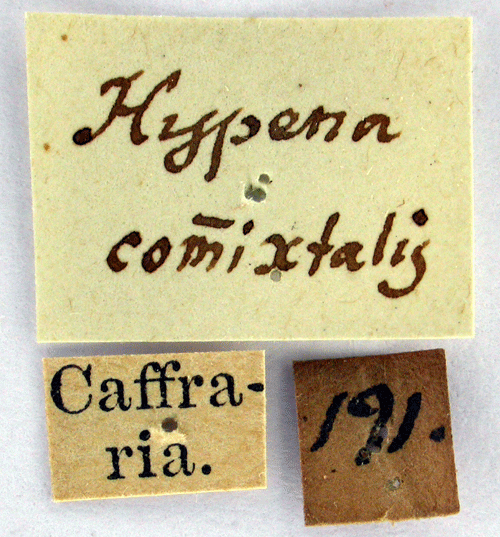 Hypena
com̄ixtalis
Caffra-
ria.
191.